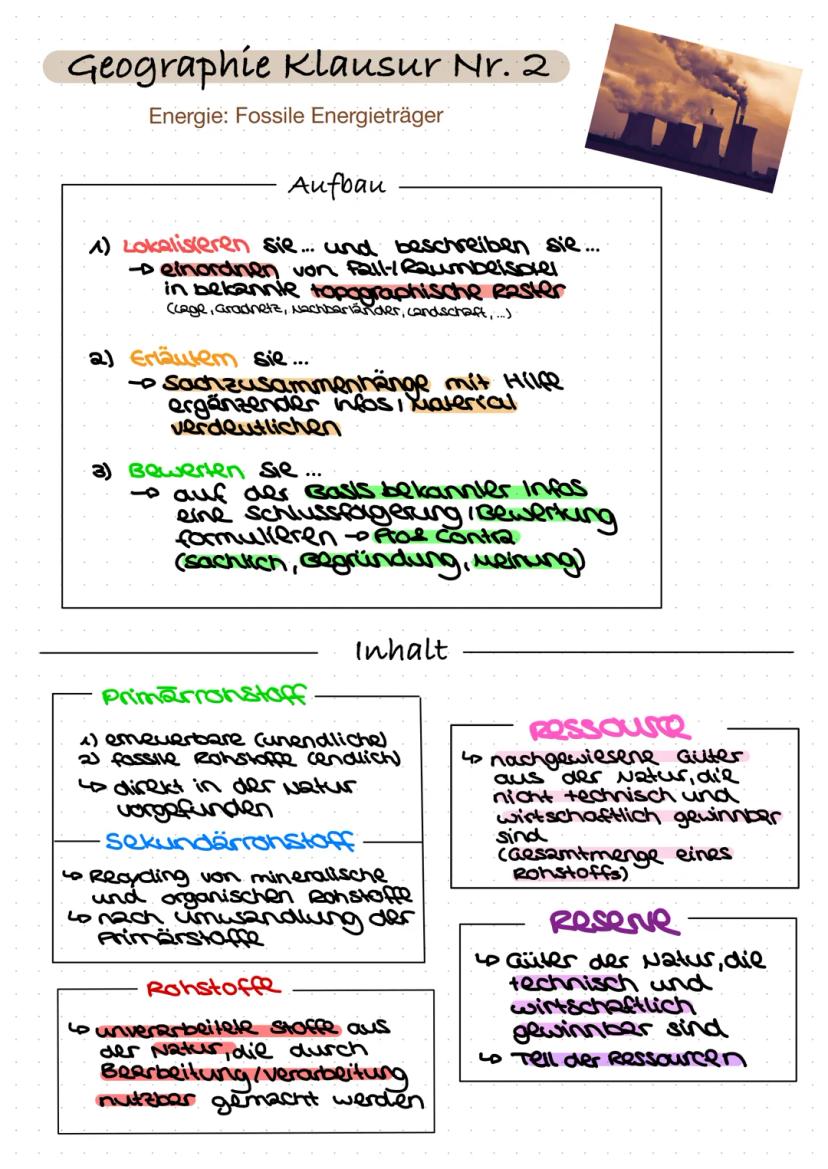 Geographie Klausur Nr. 2
Energie: Fossile Energieträger
Aufbau
1) Lokalisieren Sie ... und beschreiben Sie ...
→ einordnen von Fall-/Raumbeispiel
in bekannte topographische Raster
(Lage, Gradnetz, Nachbarländer, Landschaft, ...)
2) Erläutern Sie ...
→ Sachzusammenhänge mit Hilfe
ergänzender Infos / Material
verdeutlichen
3) Bewerten Sie ...
→ auf der Basis bekannter Infos
eine Schlussfolgerung / Bewertung
formulieren → Pro & Contra
(sachlich, Begründung, Meinung)
Inhalt
Primärrohstoff
1) erneuerbare (unendliche)
2) fossile Rohstoffe (endlich)
↳ direkt in der Natur
vorgefunden
Sekundärrohstoff
↳ Recycling von mineralische
und organischen Rohstoffe
↳ nach Umwandlung der
Primärstoffe
Rohstoffe
↳ unverarbeitete Stoffe aus
der Natur, die durch
Bearbeitung/Verarbeitung
nutzbar gemacht werden
Ressource
↳ nachgewiesene Güter
aus der Natur, die
nicht technisch und
wirtschaftlich gewinnbar
sind
(Gesamtmenge eines
Rohstoffs)
Reserve
↳ Güter der Natur, die
technisch und
wirtschaftlich
gewinnbar sind
↳ Teil der Ressourcen